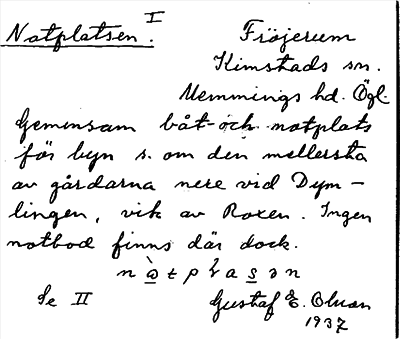 I
Notplatsen. Fröjerum
Kimstads sn.
Memmings hd. Ögl.
Gemensam båt- och notplats
för byn s. om den mellersta
av gårdarna nere vid Dym-
lingen, vik av Roxen. Ingen
notbod finns där dock.
Se II Gustaf E. Olsson
1937